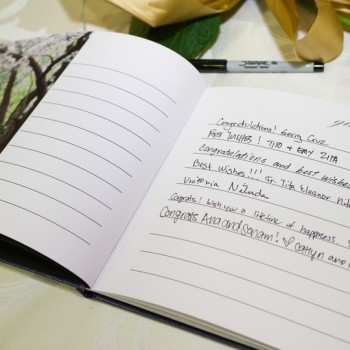 Congratulations! Georg Cruz
Best Wishes! TITO & BABY ZITA
Congratulations and best wishes
Best Wishes!!! Sr. Tita Eleanor
Victoria Nilinda
Congrats! Wish you a lifetime of happiness,
Congrats Ana and Sonam! ♡ Caitlyn and
Sharpie